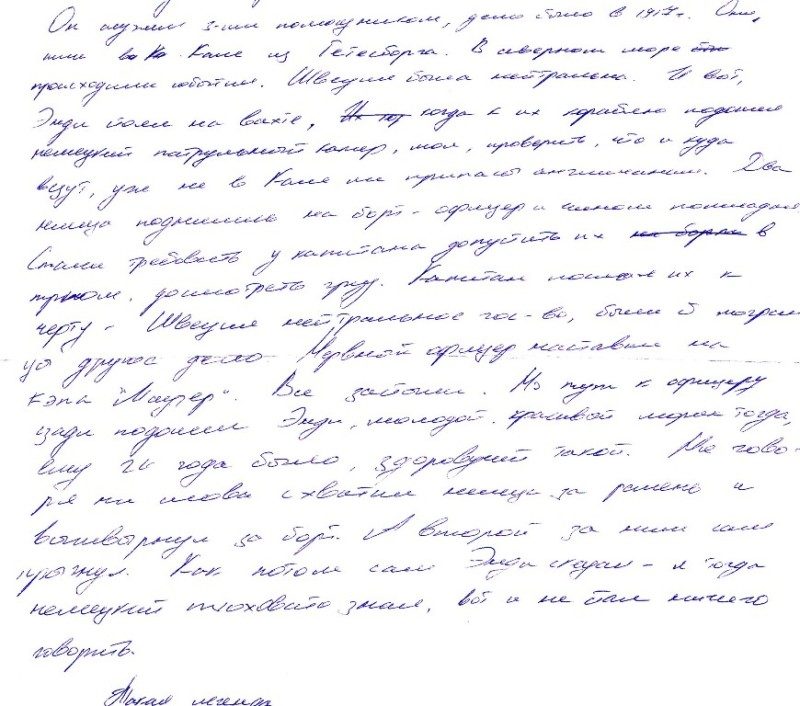 Он служил 3-им помощником, дело было в 1917 г. Они,
шли в Кале из Гетеборга. В северном море
происходили события. Швеция была нейтральна. И вот,
Энди стоял на вахте, когда к их кораблю подошел
немецкий патрульный катер, мол, проверить, что и куда
везут, уж не в Кале ли припасы англичанам. Два
немца поднялись на борт - офицер и
Стали требовать у капитана допустить их в
трюм, досмотреть груз. Капитан послал их к
черту. Швеция нейтральное гос-во, были б
другое дело Нервный офицер наставил на
кэпа "Маузер". Все застыли. И тут к офицеру
сзади подошел Энди, молодой, красивой моряк тогда,
ему 24 года было, здоровущий такой. Не гово-
ря ни слова схватил немца за ремень и
вышвырнул за борт. А второй за ним сам
прыгнул. Как потом сам Энди сказал - я тогда
немецкий плоховато знал, вот и не стал ничего
говорить.
Такая легенда